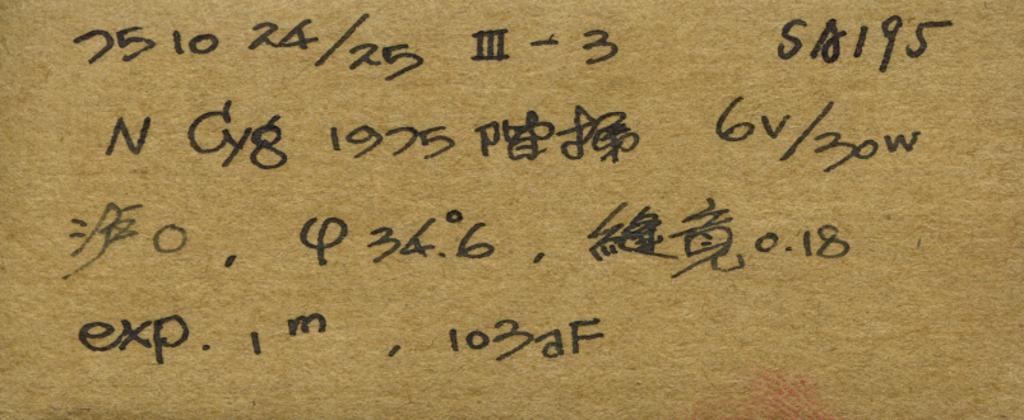 7510 24/25 III-3 SA195
N Cyg 1975 階梯 6V/30W
滤0, φ 34.°6, 縫寬 0.18
exp. 1m, 103aF